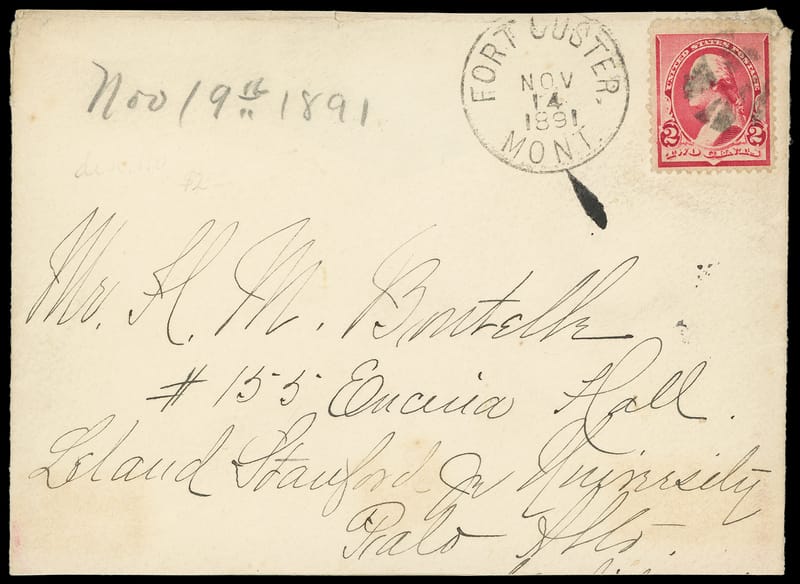 FORT CUSTER,
NOV
14
1891
MONT.
UNITED STATES POSTAGE
2 2
TWO CENTS
Nov 19th 1891
Mr. H. M. Boutelle
# 155 Encina Hall.
Leland Stanford Jr University
Palo Alto.